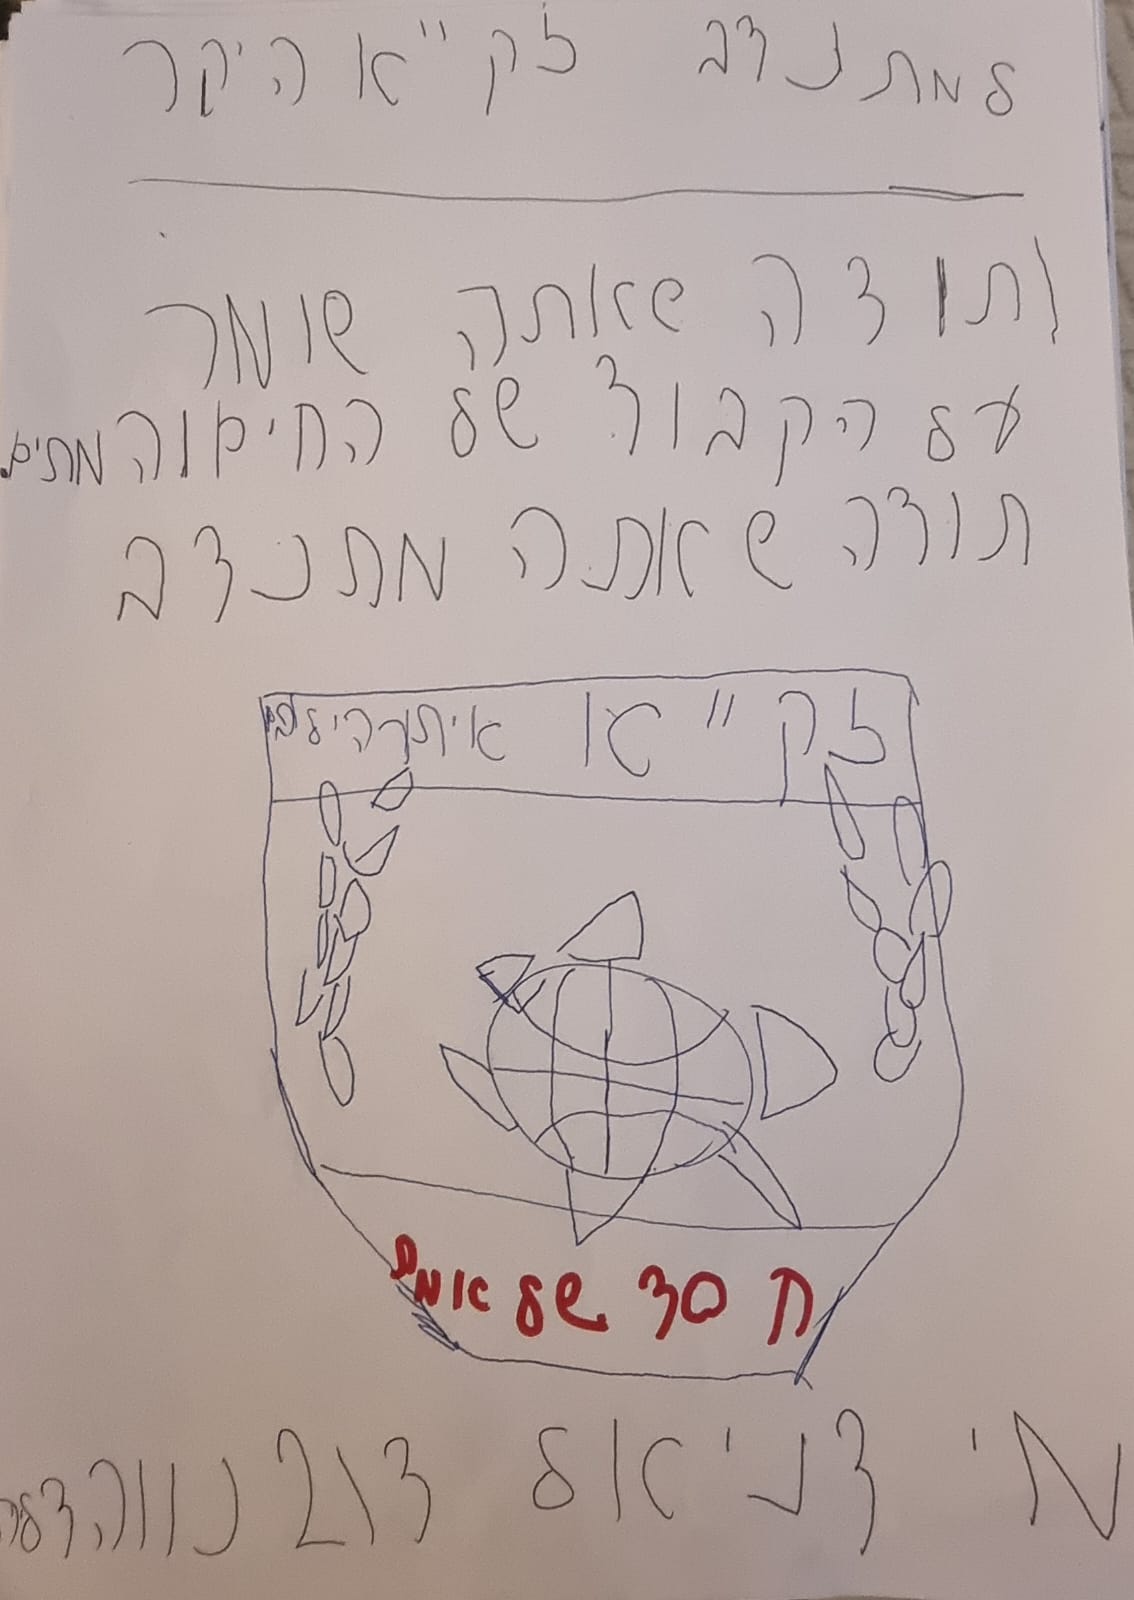 למתנדב זק"א היקר
תודה שאתה שומר
על הקבוד של החיא והמתים.
תודה שאתה מתנדב
זק"א איתור
חסד של אמת
מי דניאל דוב נווה דליה